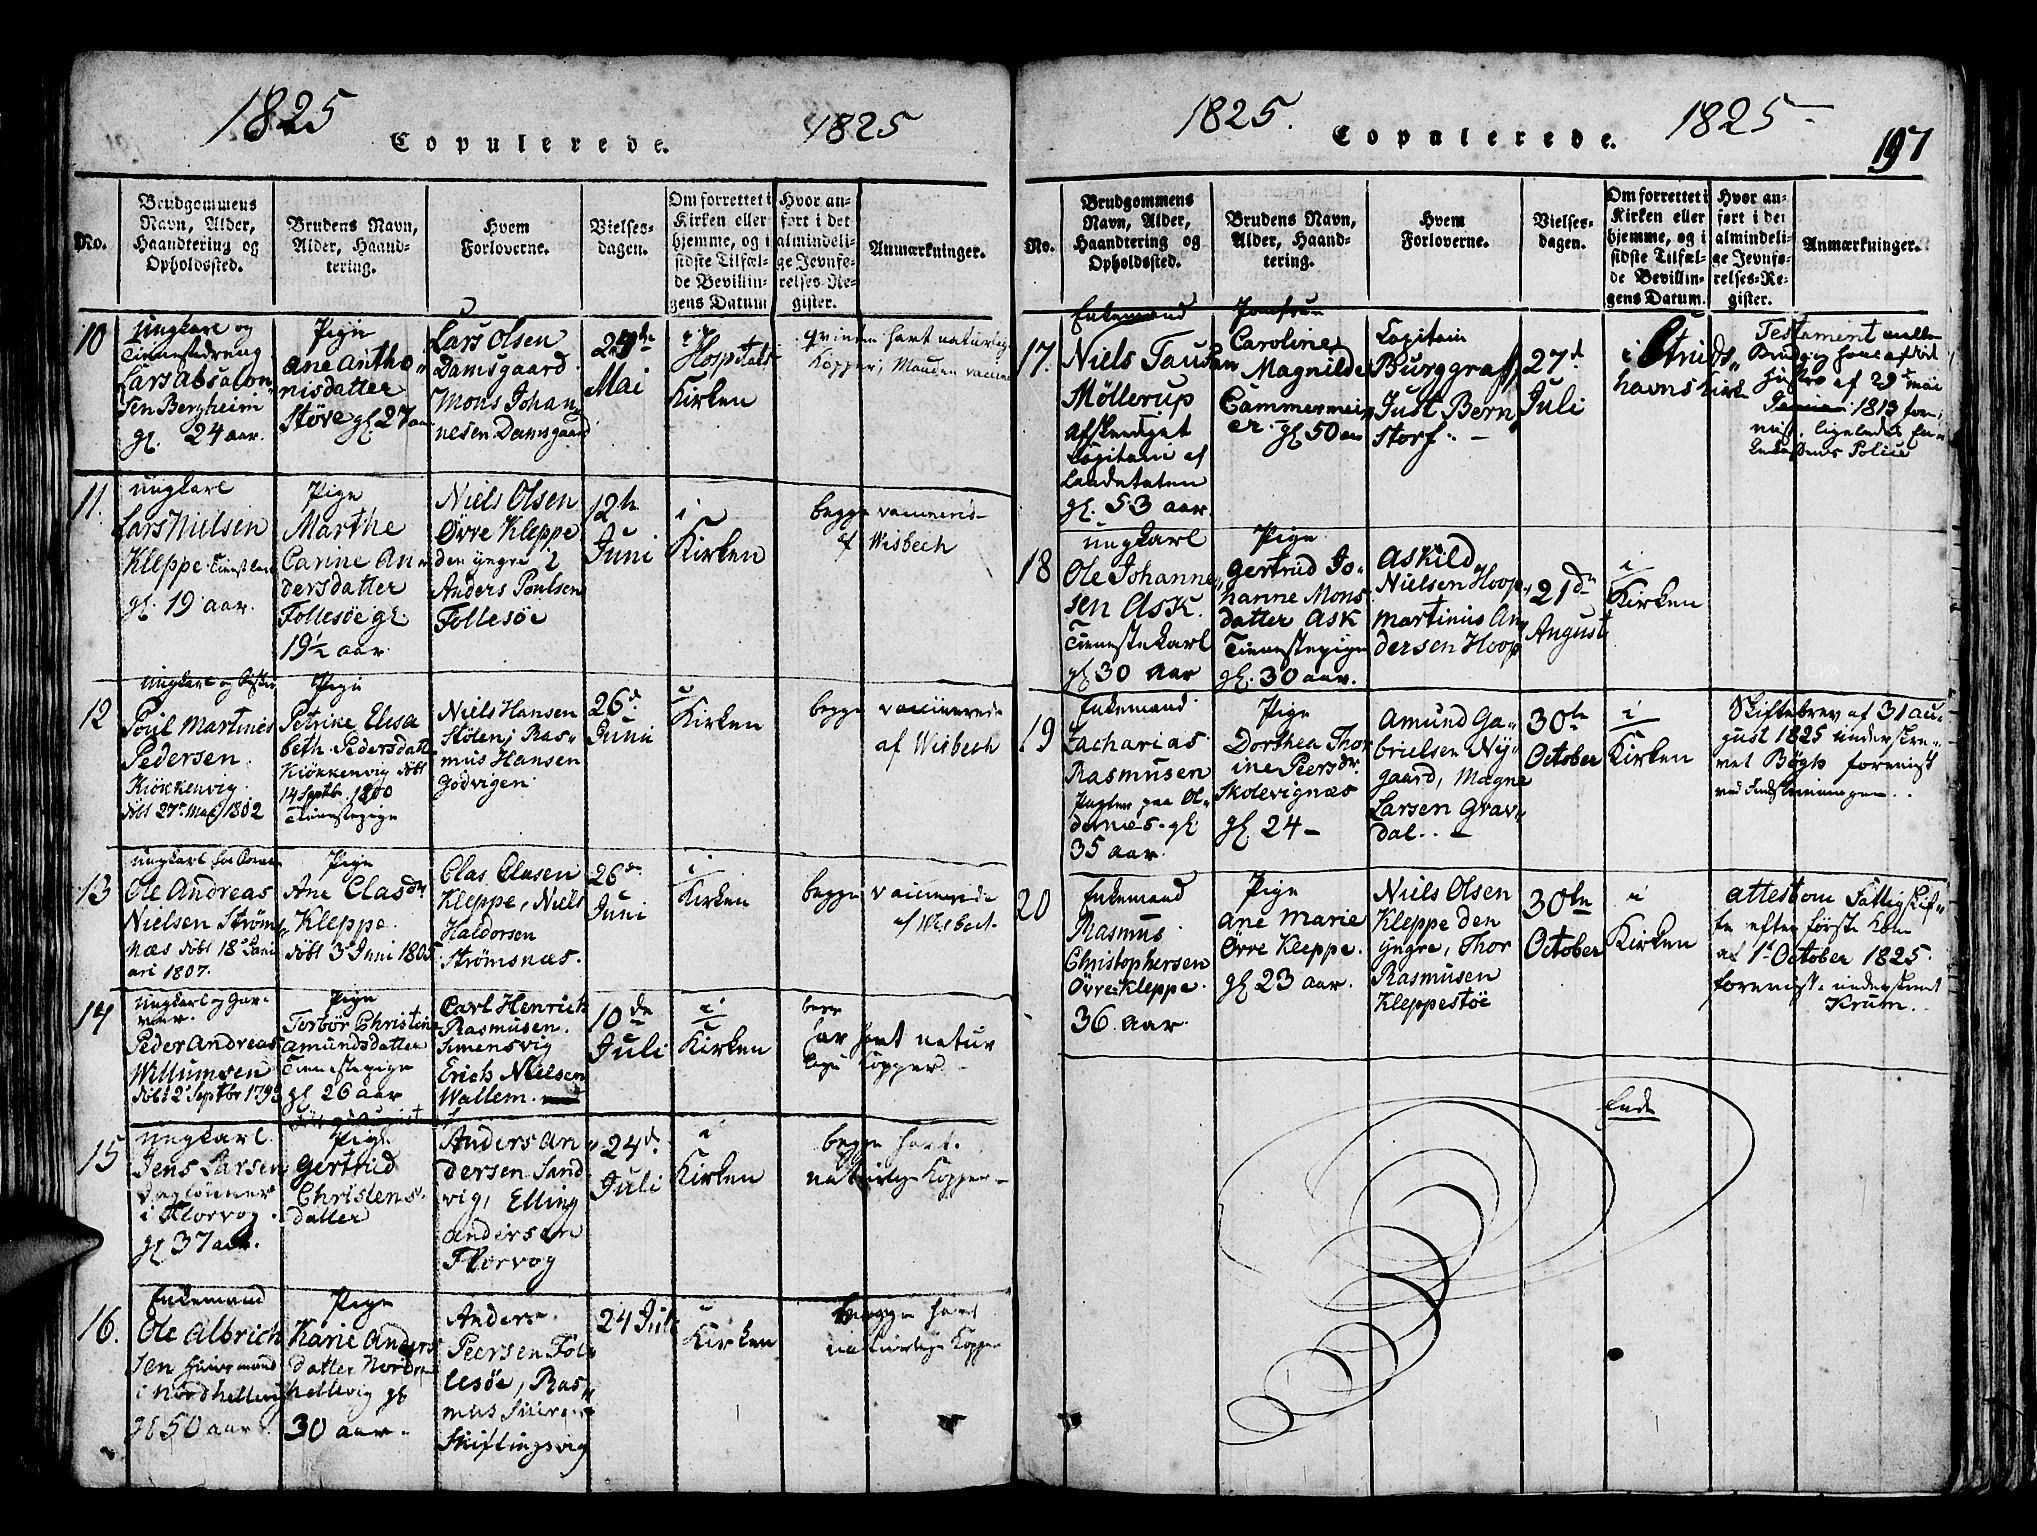 1825
Copulerede.
1825
No.
Brudgommens Navn, Alder, Haandtering og Opholdssted.
Brudens Navn, Alder, Haandtering.
Hvem Forloverne.
Vielsesdagen.
Om forrettet i Kirken eller hjemme, og i sidste Tilfælde Bevillingens Datum
Hvor anført i det almindelige Jevnførelses-Register.
Anmærkninger.
10
Ungkarl og
Tienestedreng
Lars Absalon
sen Bergheim
gl. 24 aar.
Pige
Ane Antho
nisdatter
Støve gl. 27 aar
Lars Olsen
Damsgaard
Mons Johan
nesen Damsgaard
24de
Mai
i
Hospitals
Kirken
qvinden havt naturlige
Kopper, Manden vaccineret
11.
Ungkarl
Lars Nielsen
Kleppe
gl. 19 aar.
Pige
Marthe
Carine An
dersdatter
Follesøe gl.
19½ aar
Niels Olsen
Øvre Kleppe
den yngre
Anders Poulsen
Follesøe
12te
Juni
i
Kirken
begge vaccinerede
af Wisbech
12
Ungkarl og
Poul Martines
Pedersen
Kiøkkenvig
døbt 27de Mai 1802
Pige
Petrike Elisa
beth Pedersdatter
Kiøkkenvig døbt
14 Septbr 1800
Tienestepige
Niels Hansen
Stølen; Ras-
mus Hansen
Godvigen
26de
Juni
i
Kirken
begge vaccinerede
af Wisbech
13
Ungkarl
Ole Andreas
Nielsen Strøms
næs døbt 18de Janu
ari 1807.
Pige
Ane Clasdr
Kleppe.
døbt 3de Juni 1805
Clas Clasen
Kleppe, Niels
Haldorsen
Strømsnæs.
26de
Juni
i
Kirken
begge vaccinerede
af Wisbech.
14
Ungkarl og Gar-
ver.
Peder Andreas
Willumsen
døbt 2de Septbr 1795
Pige
Torbør Christine
Amundsdatter
Tienestepige
gl. 26 aar
Carl Henrich
Rasmusen.
Simensvig
Erich Nielsen
Wallem.
10de
Juli
i
Kirken
begge
har havt natur
lige Kopper.
15
Ungkarl.
Jens Larsen
Daglønner
i Florvog.
gl. 37 aar.
Pige
Gertrud
Christens-
datter
Anders An
dersen Sand
vig, Elling
Andersen
Florvog
24de
Juli
i
Kirken
begge havt
naturlige Kopper
16.
Enkemand
Ole Albrich
sen Huusmand
i Nordhellevig
gl. 50 aar.
Pige
Karie Anders
datter Nordre
hellevig gl.
30 aar.
Anders
Peersen Fol-
lesøe, Ras-
mus
Skiftingsvig
24 Juli
i
Kirken
begge havt
naturlige Kopper
1825.
Copulerede.
1825
197
No.
Brudgommens Navn, Alder, Haandtering og Opholdssted.
Brudens Navn, Alder, Haandtering.
Hvem Forloverne.
Vielsesdagen.
Om forrettet i Kirken eller hjemme, og i sidste Tilfælde Bevillingens Datum.
Hvor anført i det almindelige Jevnførelses-Register.
Anmærkninger.
17.
Enkemand
Niels Tausan
Möllerup
Afskediget
Capitain af
Landetaten
gl. 53 aar.
Jomfrue
Caroline
Magnilde
Cammermeier
gl. 50 aar
Capitain
Burggraff
Just Bern
storf
27de
Juli
i Struds-
havns Kirke
Testament mellem
af 29de Mai
1813
Police
18
Ungkarl
Ole Johanne
sen Ask.
Tienestekarl
gl. 30 aar
Pige
Gertrud Jo-
hanne Mons
datter Ask
Tienestepige
gl. 30 aar.
Askild
Nielsen Hoop
Martinus An
dersen Hoop
21de
August
i
Kirken
19
Enkemand
Zacharias
Rasmusen
35 aar.
Pige
Dorthea Thor
ine Peersdr.
Skolevignæs
gl. 24
Amund Ga-
brielsen Ny-
gaard, Magne
Larsen Grav-
dal.
30te
October
i
Kirken
Skiftebrev af 31 Au-
gust 1825 underskre-
vet Bøgh forevist
ved Indskrivningen.
20
Enkemand
Rasmus
Christophersen
Øvre-Kleppe.
36 aar.
Pige
Ane Marie
Øvre Kleppe.
gl. 23 aar.
Niels Olsen
Kleppe den
yngre, Thor
Rasmusen
Kleppestøe
30te
October
i
Kirken
Attest om Fattigskif-
te efter første Kone
af 1te October 1825.
forevist underskrevet
Krum.
Ende